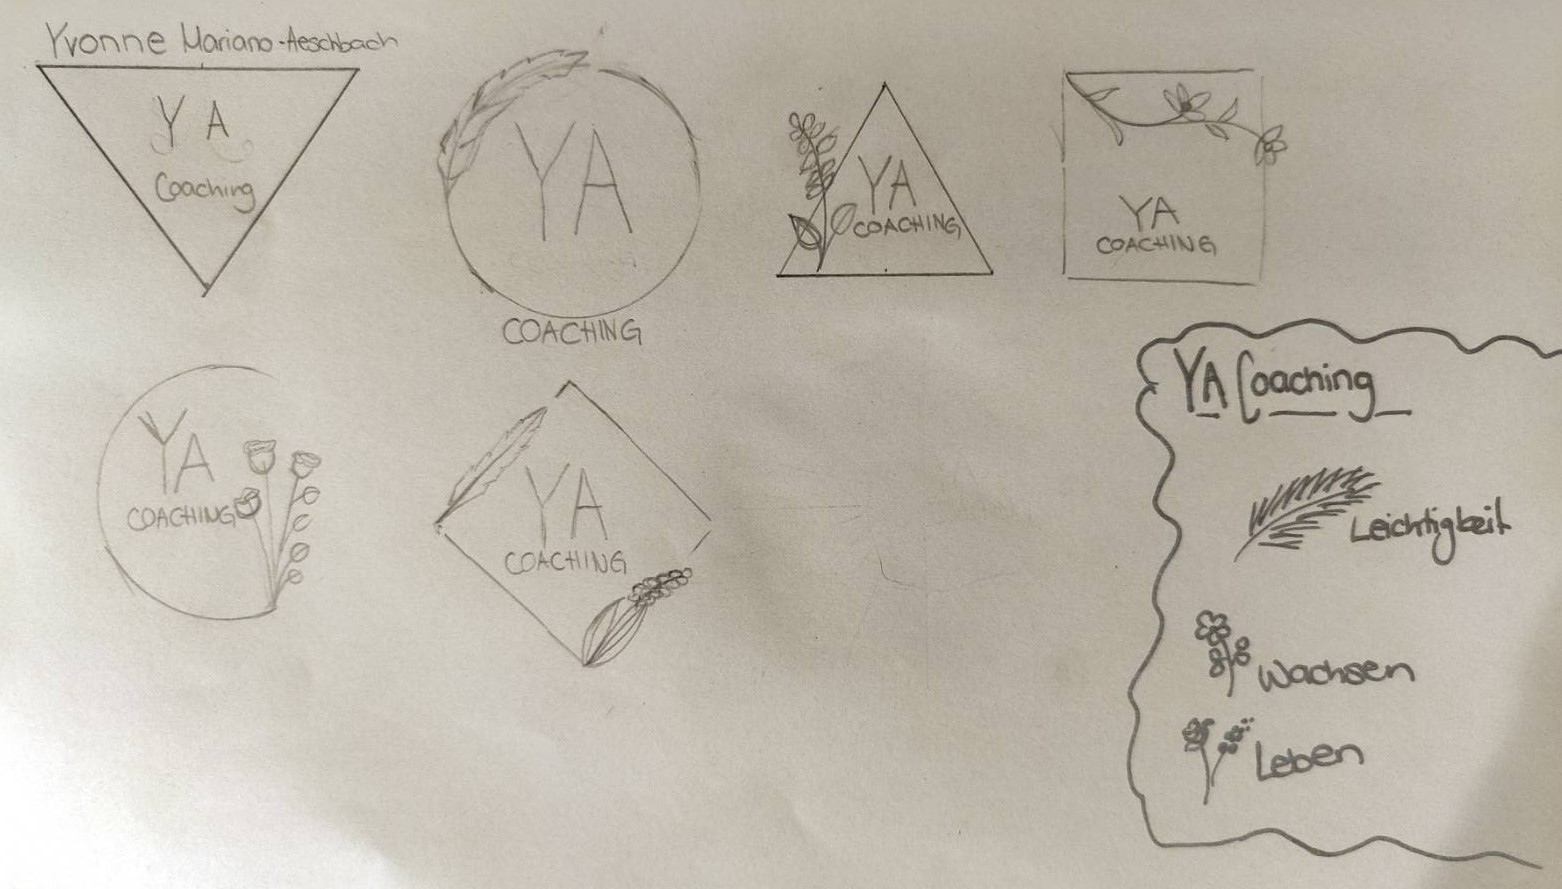 Yvonne Mariano-Aeschbach
Y A
Coaching
YA
COACHING
YA
COACHING
YA
COACHING
YA
COACHING
YA
COACHING
YA Coaching
Leichtigkeit
Wachsen
Leben